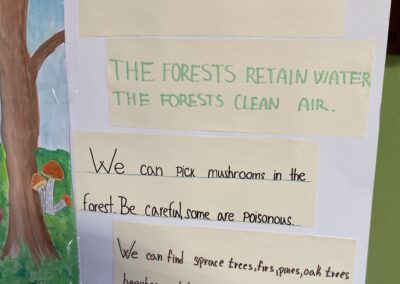 THE FORESTS RETAIN WATER
THE FORESTS CLEAN AIR.
We can pick mushrooms in the
forest. Be careful, some are poisonous.
We can find spruce trees, firs, pines, oak trees